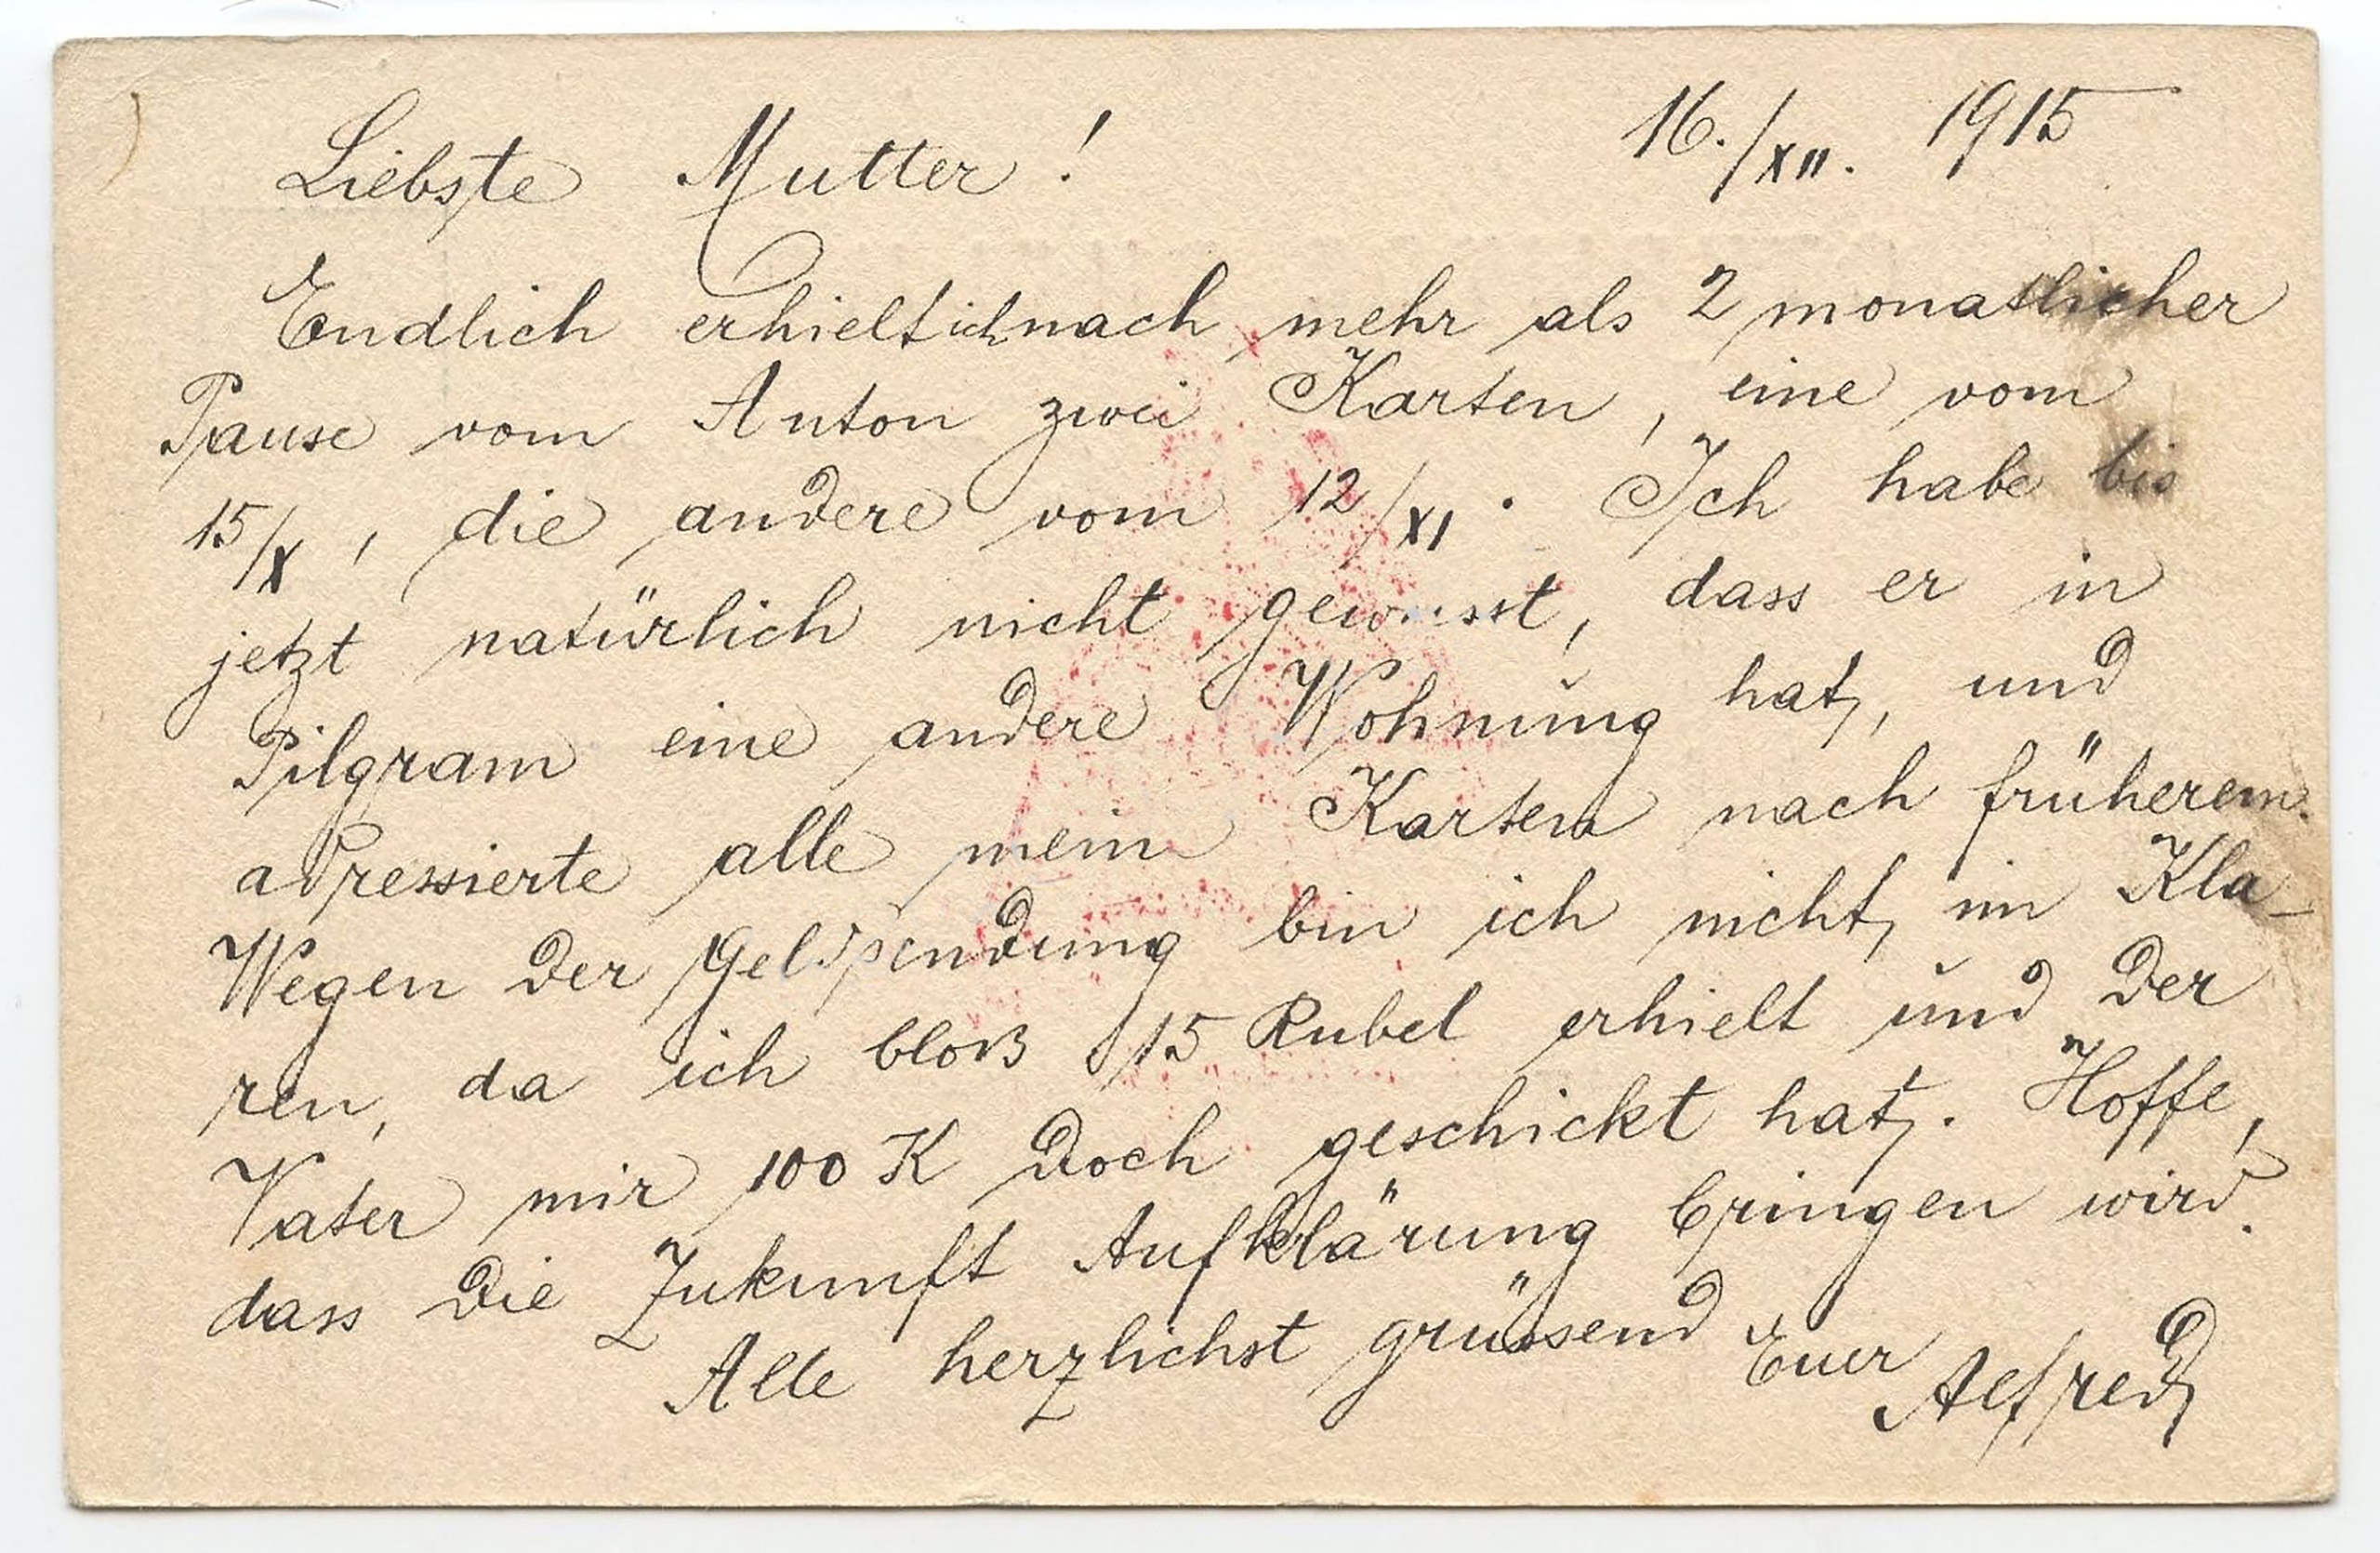 16./XII. 1915
Liebste Mutter!
Endlich erhielt ich nach mehr als 2 monatlicher
Pause vom Anton zwei Karten, eine vom
15/X, die andere vom 12/XI. Ich habe bis
jetzt natürlich nicht gewusst, dass er in
Pilgram eine andere Wohnung hat, und
adressierte alle mein Karten nach früherem.
Wegen der Geldspendung bin ich nicht im Kla-
ren, da ich bloß 15 Rubel erhielt und der
Vater mir 100 K doch geschickt hat. Hoffe,
dass die Zukunft Aufklärung bringen wird.
Alle herzlichst grüssend Euer Alfred